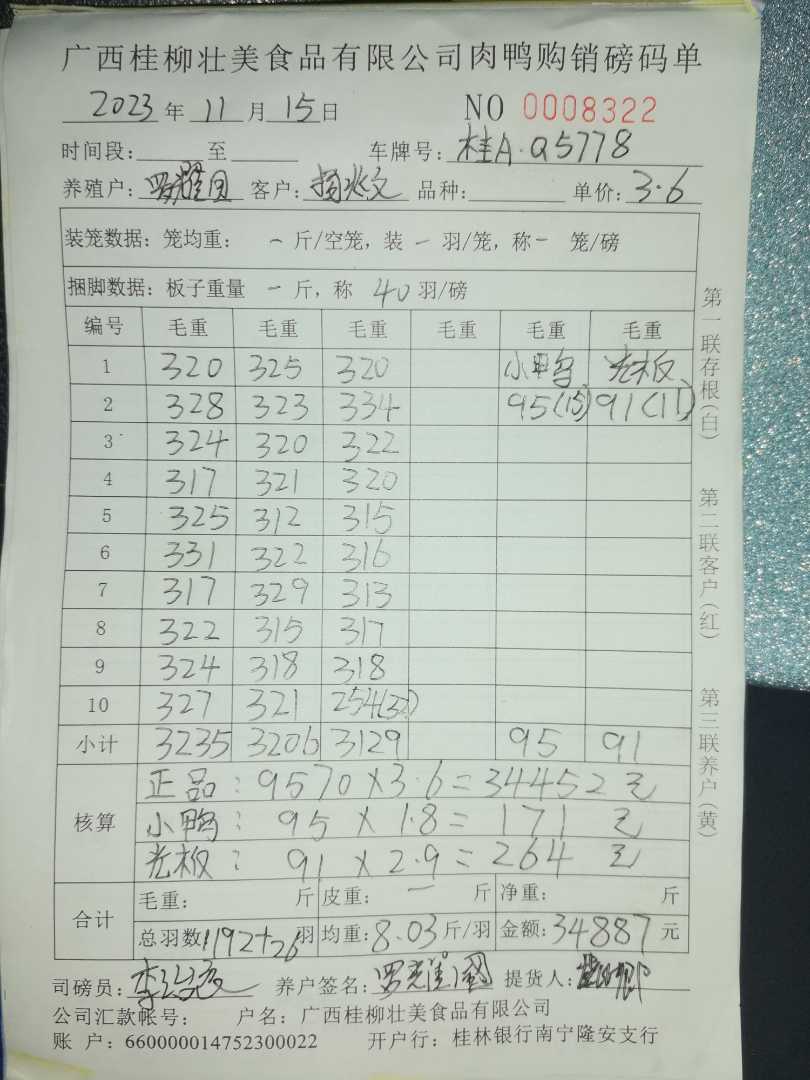 广西桂柳壮美食品有限公司肉鸭购销磅码单
2023年11月15日 NO 0008322
时间段: 至 车牌号: 桂A·Q5778
养殖户: 罗耀国 客户: 杨兆文 品种: 单价: 3.6
装笼数据: 笼均重: 一 斤/空笼, 装 一 羽/笼, 称 一 笼/磅
捆脚数据: 板子重量 一 斤, 称 40 羽/磅
编号 毛重 毛重 毛重 毛重 毛重 毛重
1 320 325 320 小鸭 光板
2 328 323 334 95(15) 91(11)
3 324 320 322
4 317 321 320
5 325 312 315
6 331 322 316
7 317 329 313
8 322 315 317
9 324 318 318
10 327 321 254(32)
小计 3235 3206 3129 95 91
核算 正品: 9570×3.6=34452元
小鸭: 95×1.8=171元
光板: 91×2.9=264元
合计 毛重: 斤 皮重: 一 斤 净重: 斤
总羽数 1192+26 羽 均重: 8.03 斤/羽 金额: 34887 元
司磅员: 养户签名: 罗耀国 提货人:
公司汇款帐号: 户名: 广西桂柳壮美食品有限公司
账 户: 660000014752300022 开户行: 桂林银行南宁隆安支行
第一联存根(白)
第二联客户(红)
第三联养户(黄)